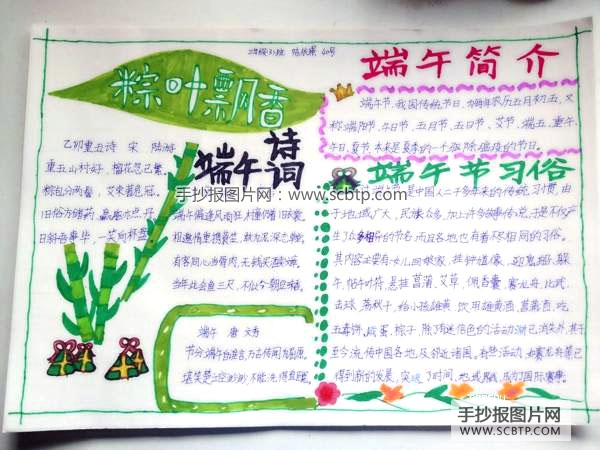 粽叶飘香
端午诗词
乙卯重五诗 宋 陆游
重五山村好，榴花忽已繁。
粽包分两髻，艾束著危冠。
旧俗方储药，羸躯亦点丹。
日斜吾事毕，一笑向杯盘
端午
当年此会鱼三尺，不似今朝豆味香。
端午 唐 文秀
节分端午自谁言，万古传闻为屈原。
堪笑楚江空渺渺，不能洗得直臣冤。
端午简介
端午节，我国传统节日，为每年农历五月初五，又
称端阳节、午日节、五月节、五日节、艾节、端五、重午、
午日、夏节，本来是夏季的一个驱除瘟疫的节日。
端午节习俗
过端午节，是中国人二千多年来的传统习惯，由
于地域广大，民族众多，加上许多故事传说，于是不仅产
生了众多相异的节名，而且各地也有着不尽相同的习俗。
其内容主要有：女儿回娘家，挂钟馗像，迎鬼船、躲
午，帖午叶符，悬挂菖蒲、艾草，佩香囊，赛龙舟，比武，
击球，荡秋千，给小孩涂雄黄，饮用雄黄酒、菖蒲酒，吃
五毒饼、咸蛋、粽子
至今流传中国各地及邻近诸国。有些活动，如赛龙舟等，已
得到新的发展，突破了时间、地域界线，成为了国际赛事。
手抄报图片网 www.scbtp.com
手抄报图片网
WWW.SCBTP.COM